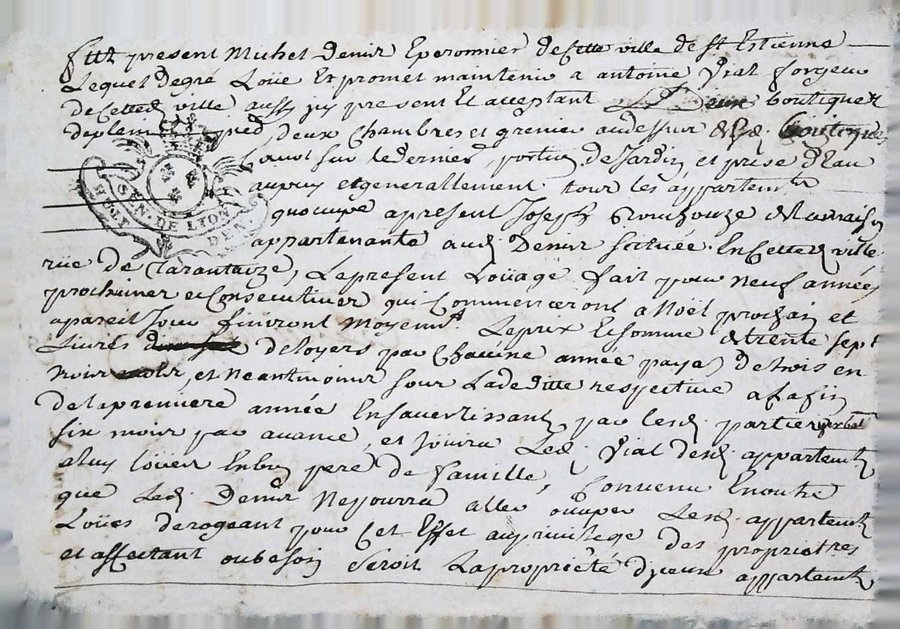 fut present Michel Denir Eperonnier de Cette ville de St Estienne
Lequel degré Loüe Et promet maintenir a antoine Vial forgeur
de Cetted ville aussy icy present Et acceptant Deux boutiques
deplein pied, deux Chambres et grenier audessus desd boutiques
Canot sur le dernier, portion de Jardin et prise d'Eau
aupuis et generallement tous les appartements
quoccupe apresent Joseph dela maison
appartenante aud Denir scituée En Cetted ville
GEN. DE LYON
rue de Tarantaize, Lepresent Loüage fait pour Neuf années
prochaines et Consecutives qui Commenceront a Noël prochain et
apareil Jour finiront moyennt Leprix Et somme de trente sept
Livres deloyers par Chacune année payad de trois en
trois mois, et Neantmoins sous Ladeditte respective a la fin
de la premiere année En saavertissant par lesd parties
six mois par avance, et Joüira Led Vial desd appartements
aluy Loües En bon pere de famille, Convenu En outre
que Led Denir Ne pourra aller occuper Lesd appartements
Loües derogeant pour Cet Effet au privilege des proprietres
et affectant oubesoin Seroit Laproprieté d'yceux appartements